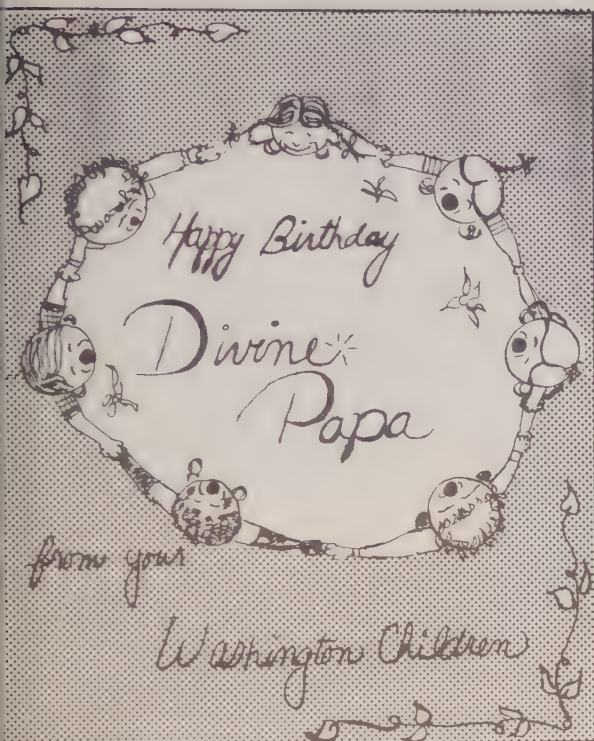 Happy Birthday
Divine
Papa
from your
Washington Children